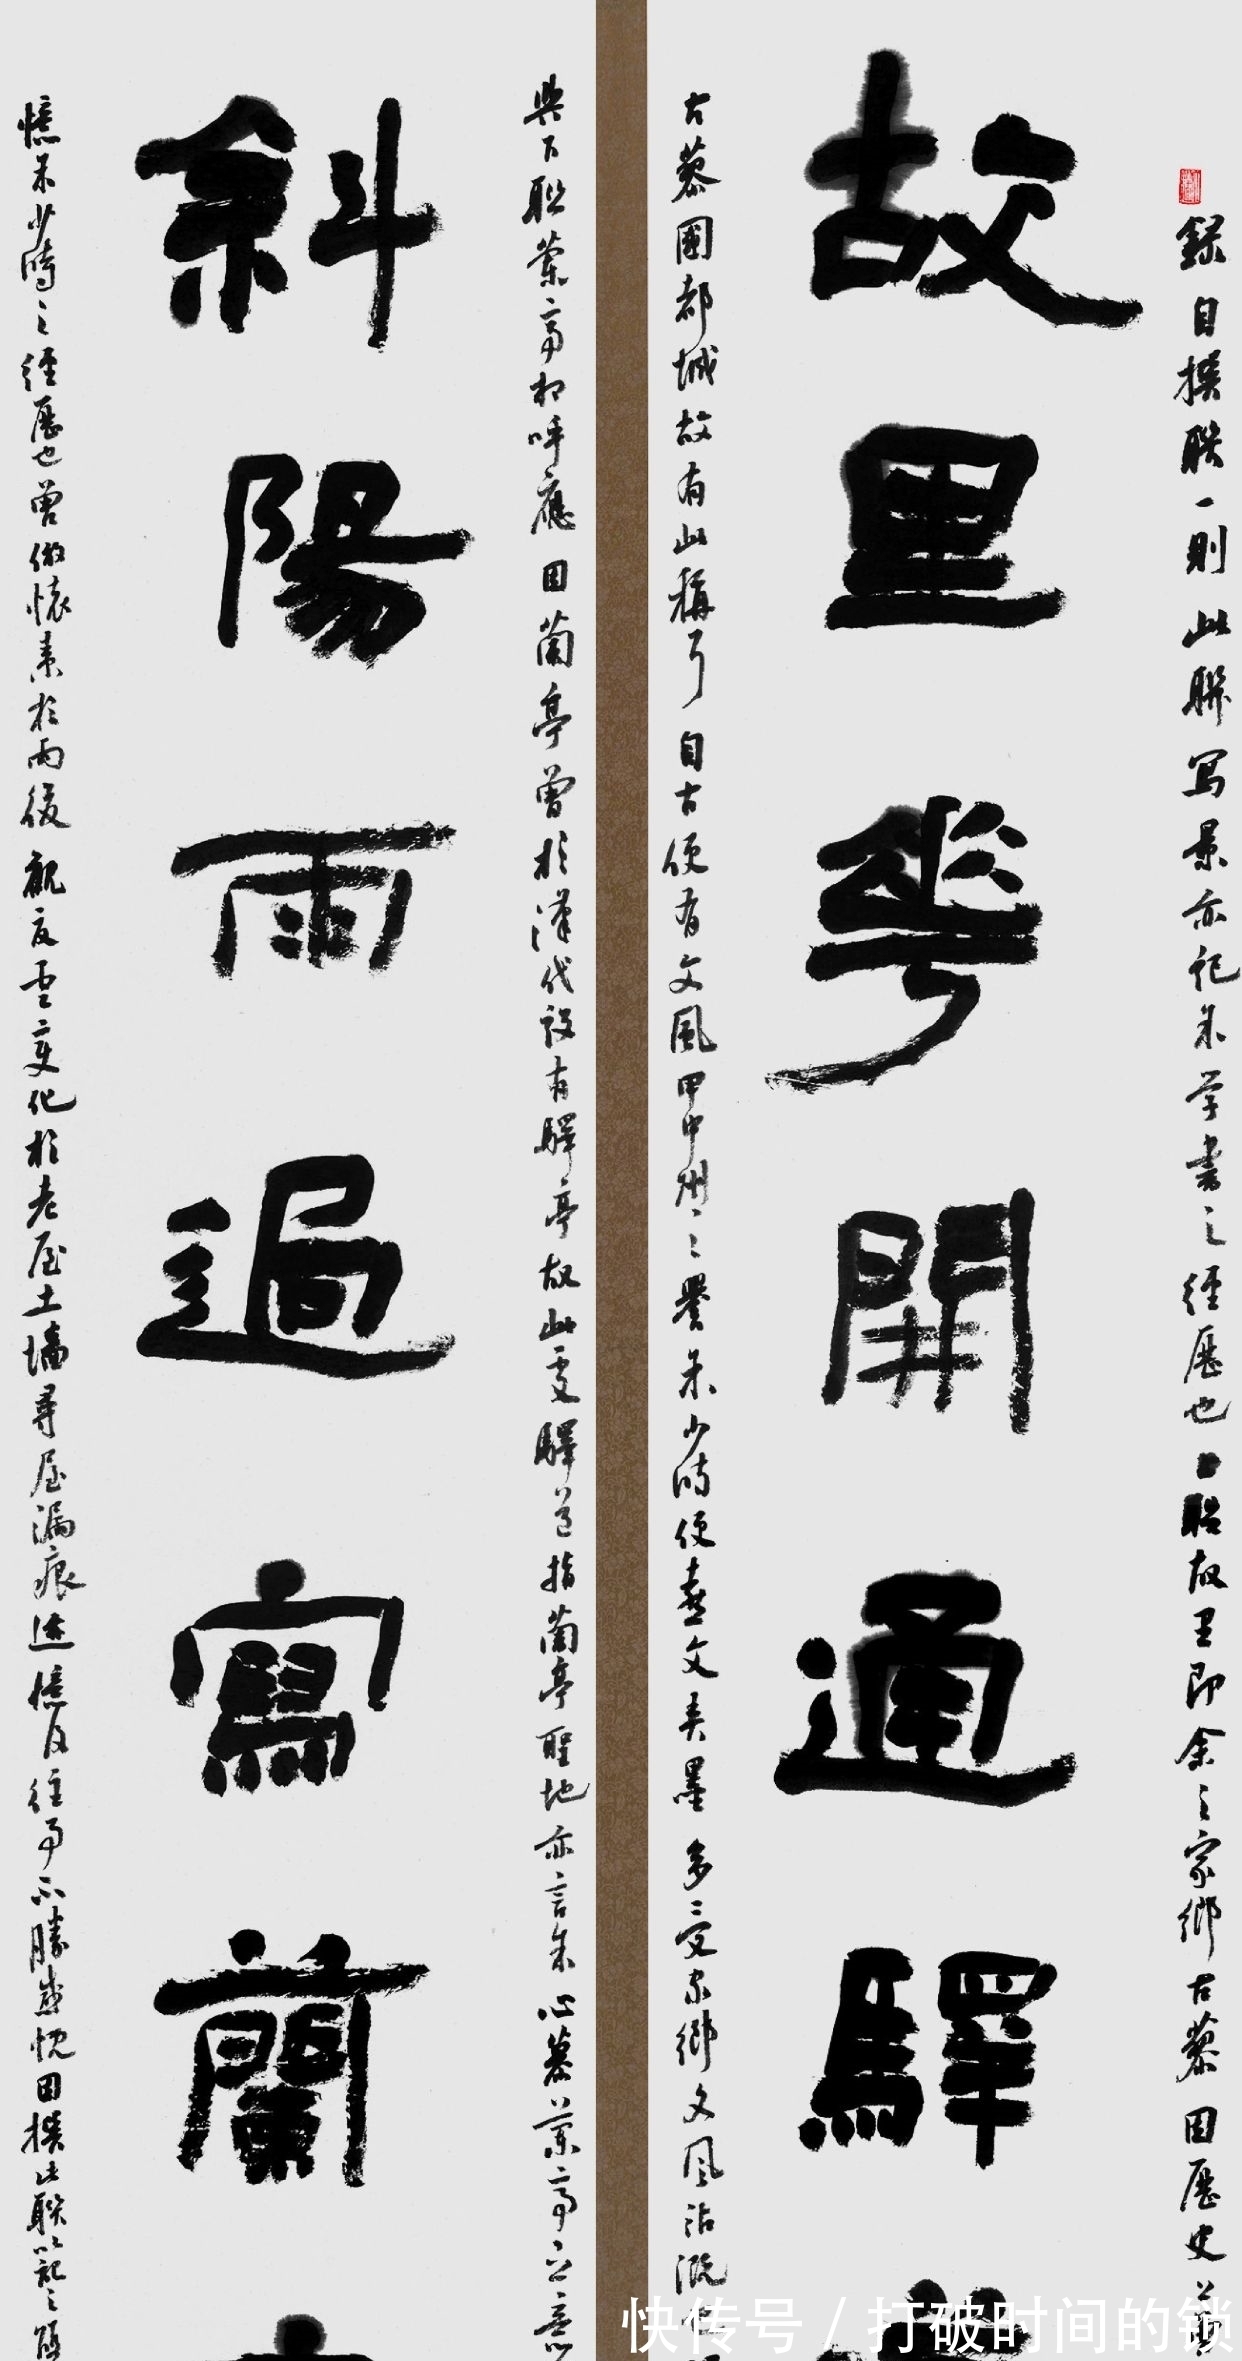 錄自撰聯一則此聯寫景亦記朱學書之經歷也上聯故里即余之家鄉古蔡因歷史
故里花開通驛
古蔡國都城故有此稱了自古便有文風甲中州之譽朱少時便喜文弄墨多受家鄉文風沾溉
與下聯蘭亭相呼應因蘭亭曾於漢代設有驛亭故此處驛道指蘭亭聖地亦言朱心慕蘭亭之意
斜陽雨過寫蘭
憶朱少時之經歷也曾倣懷素於雨後觀夏雲變化於老屋土墻尋屋漏痕迹憶及往事不勝感慨因撰此聯以記之
快传号/打破时间的锁